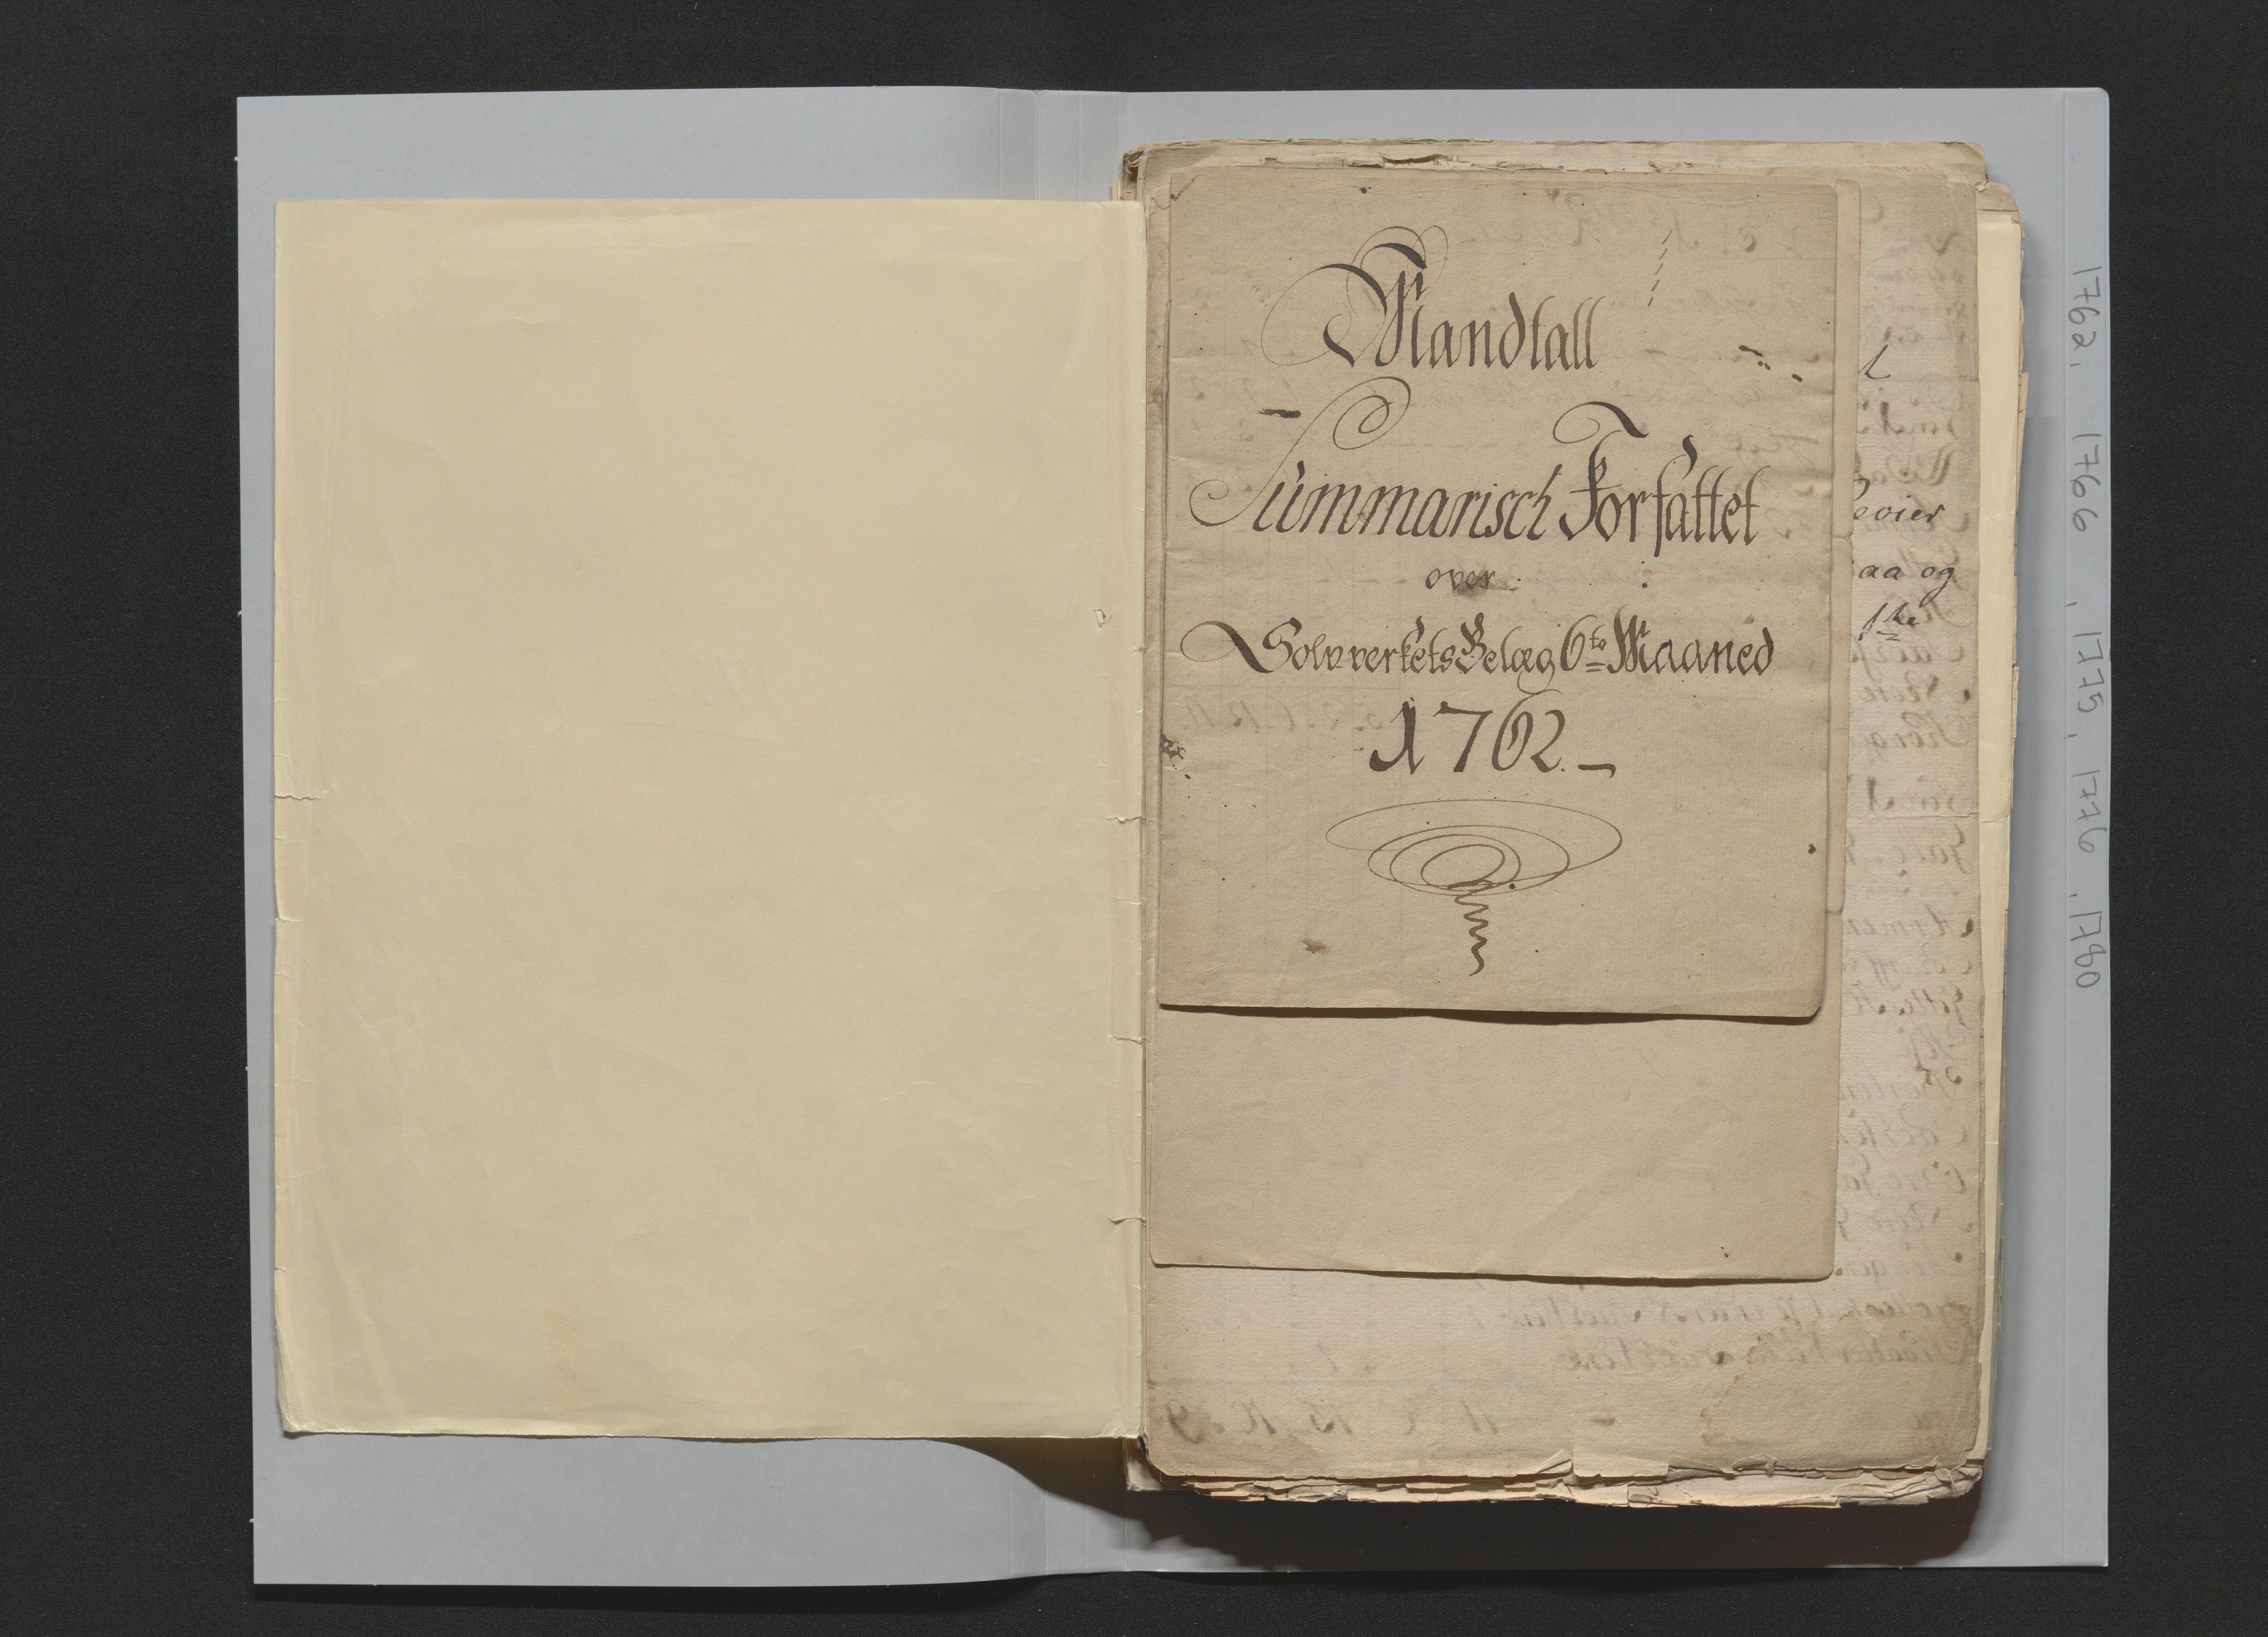 Mandtall
Summarisch Forfattet
over
Sølvverkets Belæg 6te Maaned
1762.
evier
aa og
1762. 1766, 1775, 1776, 1790